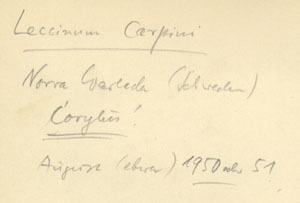 Leccinum Carpini
Norra Warleda (Schweden)
Corylus!
August (etwa) 1950 oder 51